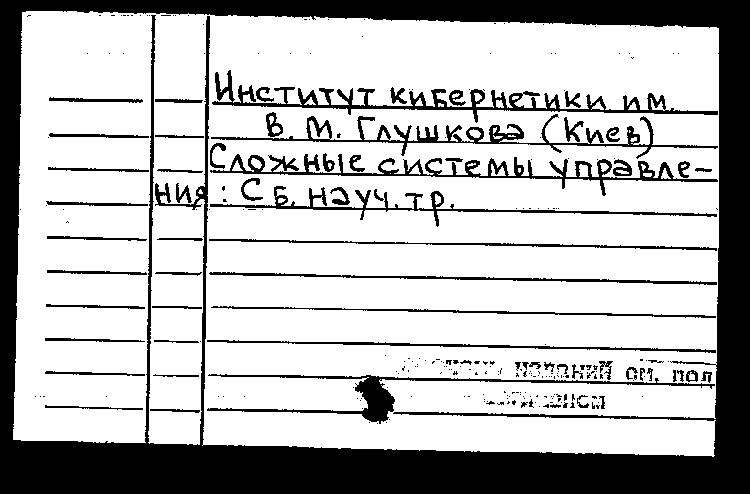 Институт кибернетики им.
В. М. Глушкова (Киев)
Сложные системы управле-
ния : Сб. науч. тр.
изданий см. под